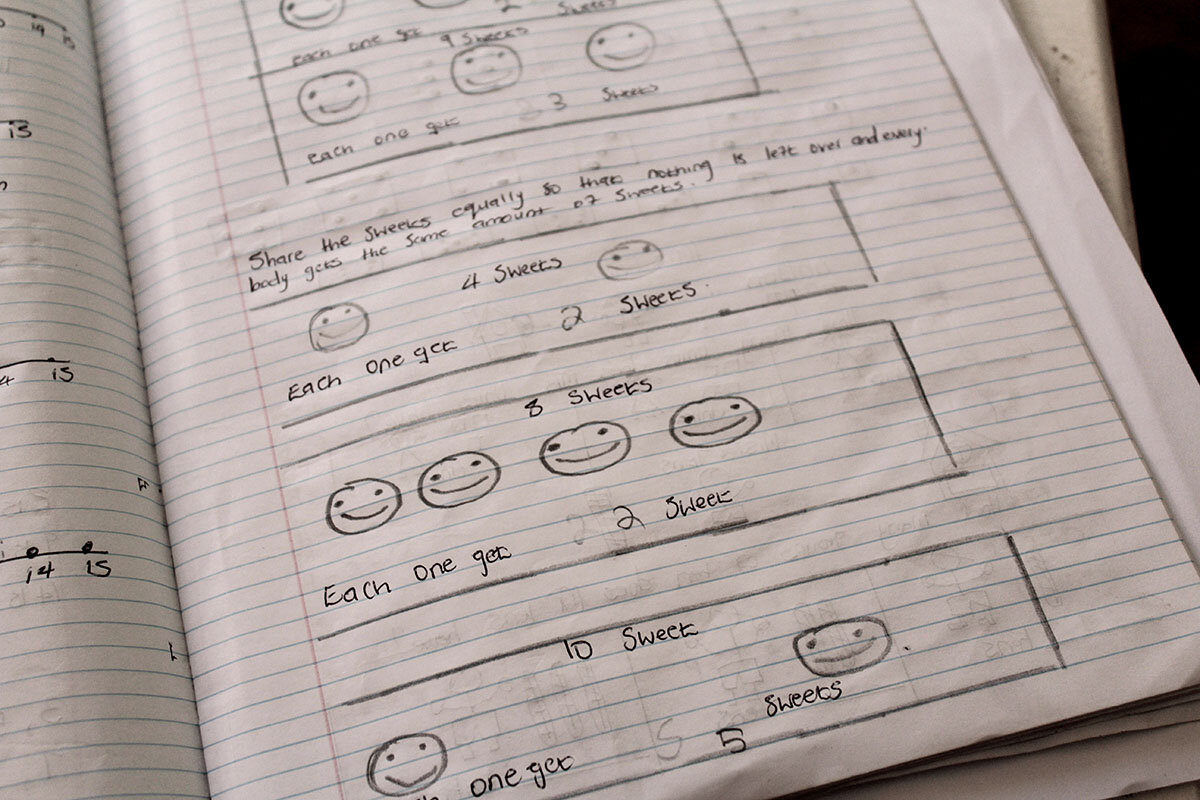 14 15
2 Sweets
each one get 9 Sweets
15
each one get 3 Sweets
Share the Sweets equally so that nothing is left over and every
body gets the same amount of Sweets.
4 Sweets
Each one get 2 Sweets.
4 15
8 Sweets
Each one get 2 Sweet
14 15
10 Sweet
Sweets
one get 5